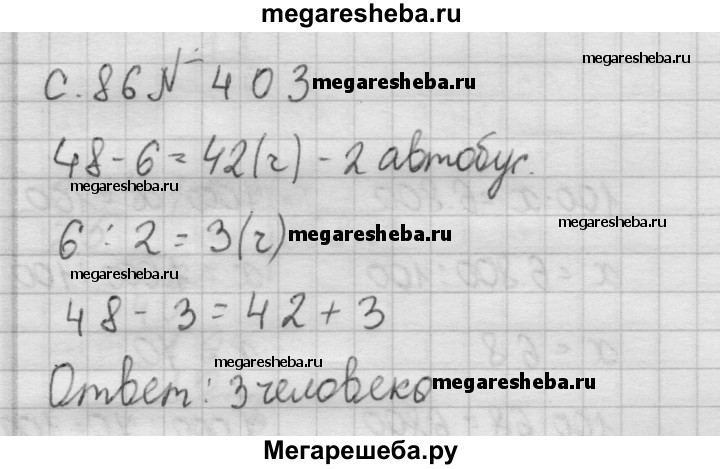 megaresheba.ru
megaresheba.ru
с. 86 № 403 megaresheba.ru
48 - 6 = 42 (ч) - 2 автобус.
megaresheba.ru
megaresheba.ru
6 : 2 = 3 (ч) megaresheba.ru
megaresheba.ru
48 - 3 = 42 + 3
megaresheba.ru
megaresheba.ru
Ответ: 3 человека megaresheba.ru
Мегарешеба.ру